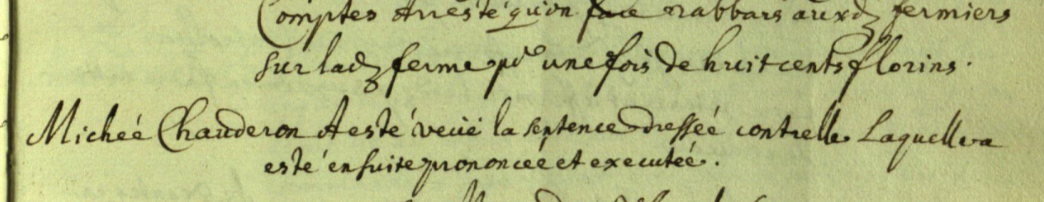 Comptes Arresté qu'on face rabbais auxd fermiers
sur lad ferme pr une fois de huit cents florins.
Micheé Chauderon A esté veüe la sentence dresseé contrelle Laquelle a
esté ensuite prononceé et executeé.